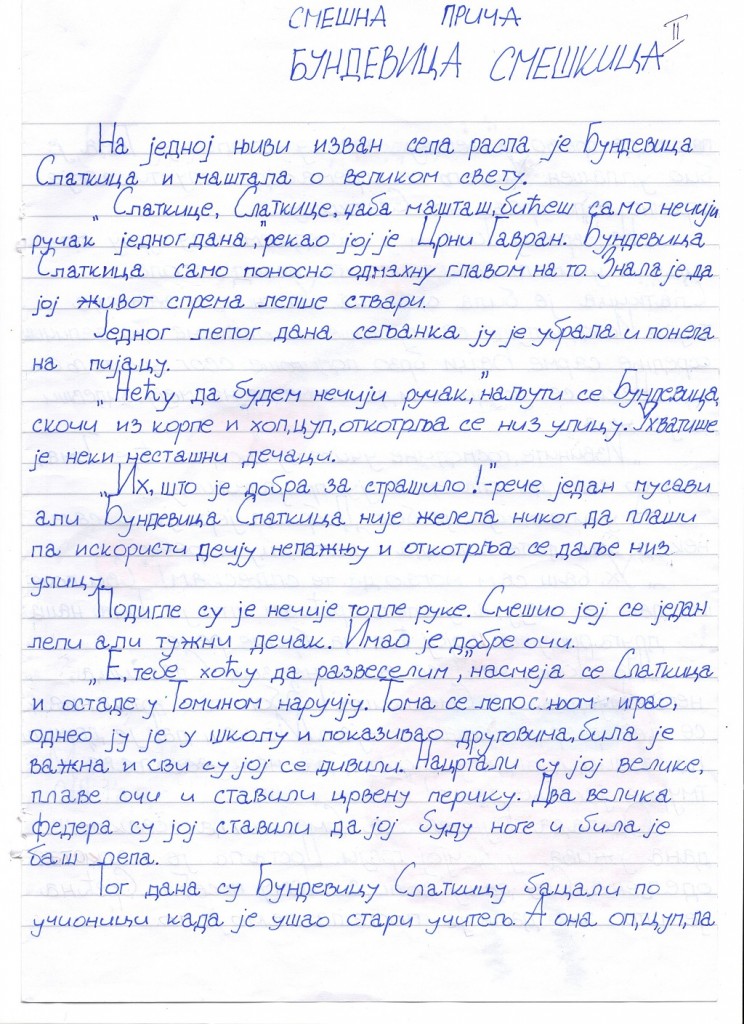 СМЕШНА ПРИЧА
БУНДЕВИЦА СМЕШКИЦА II
На једној њиви изван села расла је Бундевица
Слаткица и маштала о великом свету.
„Слаткице, Слаткице, џаба машташ, бићеш само нечији
ручак једног дана,” рекао јој је Црни Гавран. Бундевица
Слаткица само поносно одмахну главом на то. Знала је да
јој живот спрема лепше ствари.
Једног лепог дана сељанка ју је убрала и понела
на пијацу.
„Нећу да будем нечији ручак,” наљути се Бундевица,
скочи из корпе и хоп, цуп, откотрља се низ улицу. Ухватише
је неки несташни дечаци.
„Их, што је добра за страшило!”-рече један мусави
али Бундевица Слаткица није желела никог да плаши
па искористи дечју непажњу и откотрља се даље низ
улицу.
Подигле су је нечије топле руке. Смешио јој се један
лепи али тужни дечак. Имао је добре очи.
„Е, тебе хоћу да развеселим,” насмеја се Слаткица
и остаде у Томином наручју. Тома се лепо с њом играо,
однео ју је у школу и показивао друговима, била је
важна и сви су јој се дивили. Нацртали су јој велике,
плаве очи и ставили црвену перику. Два велика
федера су јој ставили да јој буду ноге и била је
баш лепа.
Тог дана су Бундевицу Слаткицу бацали по
учионици када је ушао стари учитељ. А она оп, цуп, па